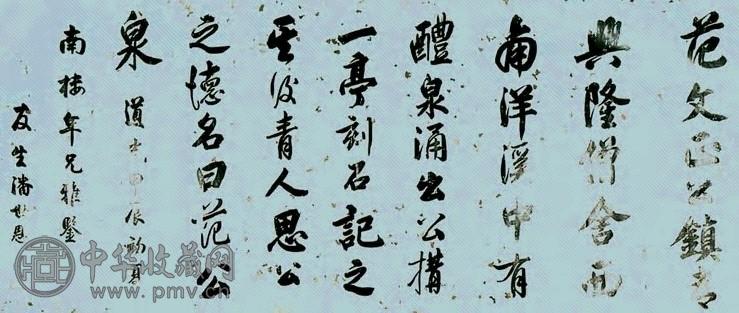 范文正公鎮青
興隆僧舍西
南洋溪中有
醴泉涌出公構
一亭刻石記之
其後青人思公
之德名曰范公
泉
道光甲辰初夏
南樓年兄雅鑒
友生潘世恩
中华收藏网
www.pmv.cn